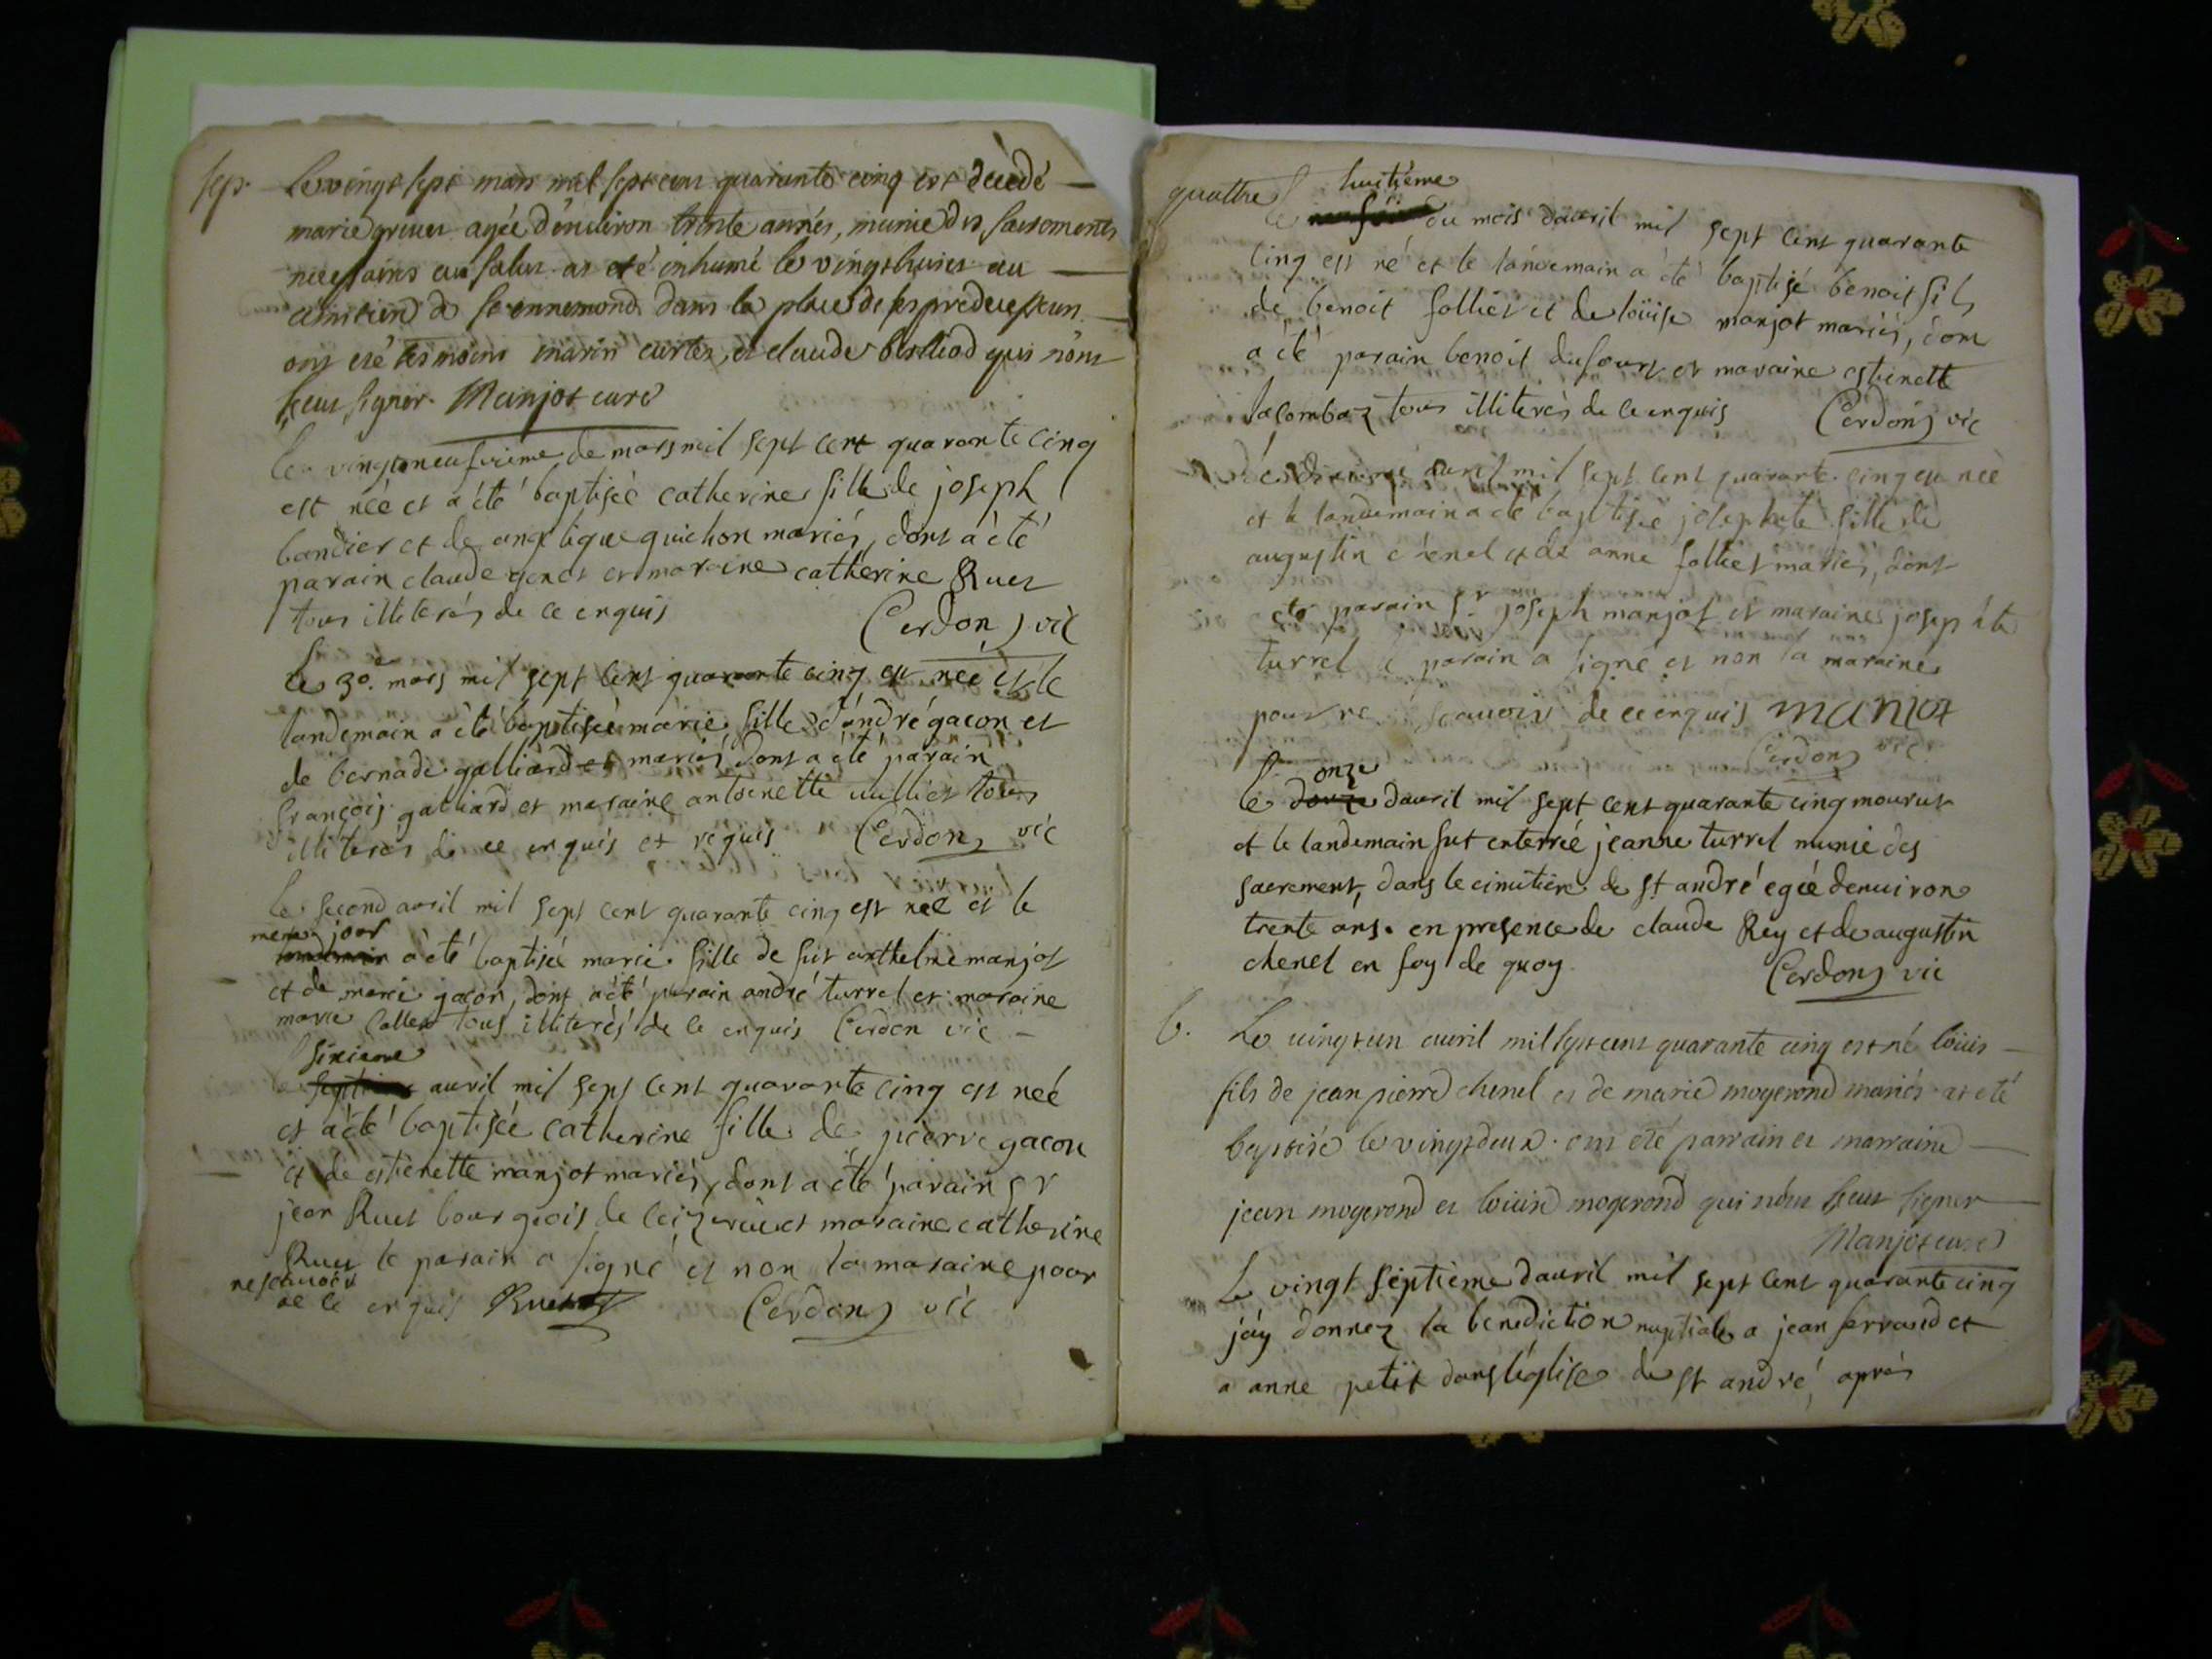 sep. Le vingt sept mars mil sept cens quarante cinq est décédé
marie grines agée d'environ trente années, munie des sacrements
necessaires au salut. at eté inhumé le vingt huict au
cimitiere de st ennemond dans la place de ses predecesseurs
ont eté tesmoins marin curtes, et claude bertliod qui n'ont
sceus signer. Manjot curé
Le vingtneufvieme de mars mil sept cent quarante cinq
est née et a été baptisée catherine fille de joseph
bandier et de angelique guichon mariés, dont a été
parain claude genet et maraine catherine Ruet
tous illiterés de ce enquis Cerdon vic
Le 30e. mars mil sept cent quarante cinq est née et le
landemain a été baptisée marie fille d'andré gacon et
de bernade galliard et mariés dont a été parain
françois galliard et maraine antoinette vulliet tous
illiterés de ce enquis et requis Cerdon vic
Le second avril mil sept cent quarante cinq est née et le
meme jour
landemain a été baptisée marie fille de fut anthelme manjot
et de marie gacon, dont a été parain andré turrel et maraine
marie Collet tous illiterés de ce enquis Cerdon vic
sixieme
Le septieme avril mil sept cent quarante cinq est née
et a été baptisée catherine fille de pierre gacon
et de estienette manjot mariés, dont a été parain sr
jean Ruet bourgeois de ceizerieu et maraine catherine
Ruet le parain a signé et non la maraine pour
ne scavoir
de ce enquis Ruet Cerdon vic
quattre
huitième
Le du mois davril mil sept cent quarante
cinq est né et le landemain a été baptisé benoit fils
de benoit folliet et de loüise manjot mariés, dont
a été parain benoit dufour et maraine estienette
lacombaz tous illiterés de ce enquis Cerdon vic
Le dixieme avril mil sept cent quarante cinq est née
et le landemain a été baptisée josephete fille de
augustin chenel et de anne folliet mariés, dont
été parain sr joseph manjot et maraine josephte
turrel le parain a signé et non la maraine
pour ne scauoir de ce enquis manjot
Cerdon vic
onze
Le douze davril mil sept cent quarante cinq mourut
et le landemain fut enterrée jeanne turrel munie des
sacrement, dans le cimitiere de st andré egée denuiron
trente ans. en presence de claude Rey et de augustin
chenel en foy de quoy Cerdon vic
b. Le vingt un avril mil sept cens quarante cinq est né loüis
fils de jean pierre chenel et de marie mogerond mariés at eté
baptisé le vingt deux. ont eté parrain et marraine
jean mogerond et loüise mogerond qui n'ont sceus signer
Manjot curé
Le vingt septième davril mil sept cent quarante cinq
j'ay donnez la benediction nuptiale a jean ferrand et
a anne petit dans léglise de st andré, après